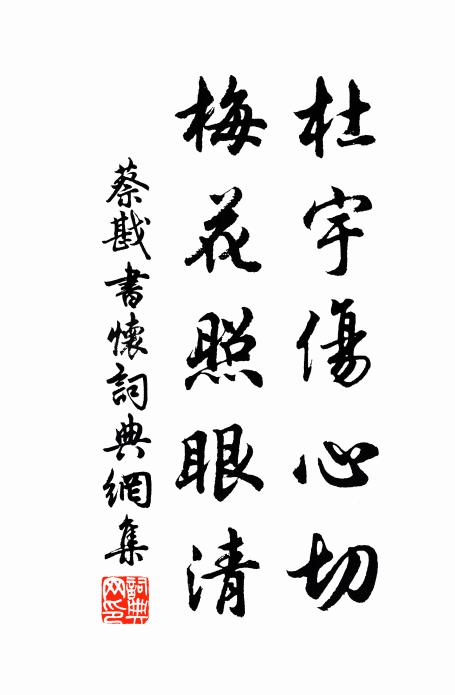 杜宇傷心切
梅花照眼清
蔡戡書懷詞典網集
詞典网印